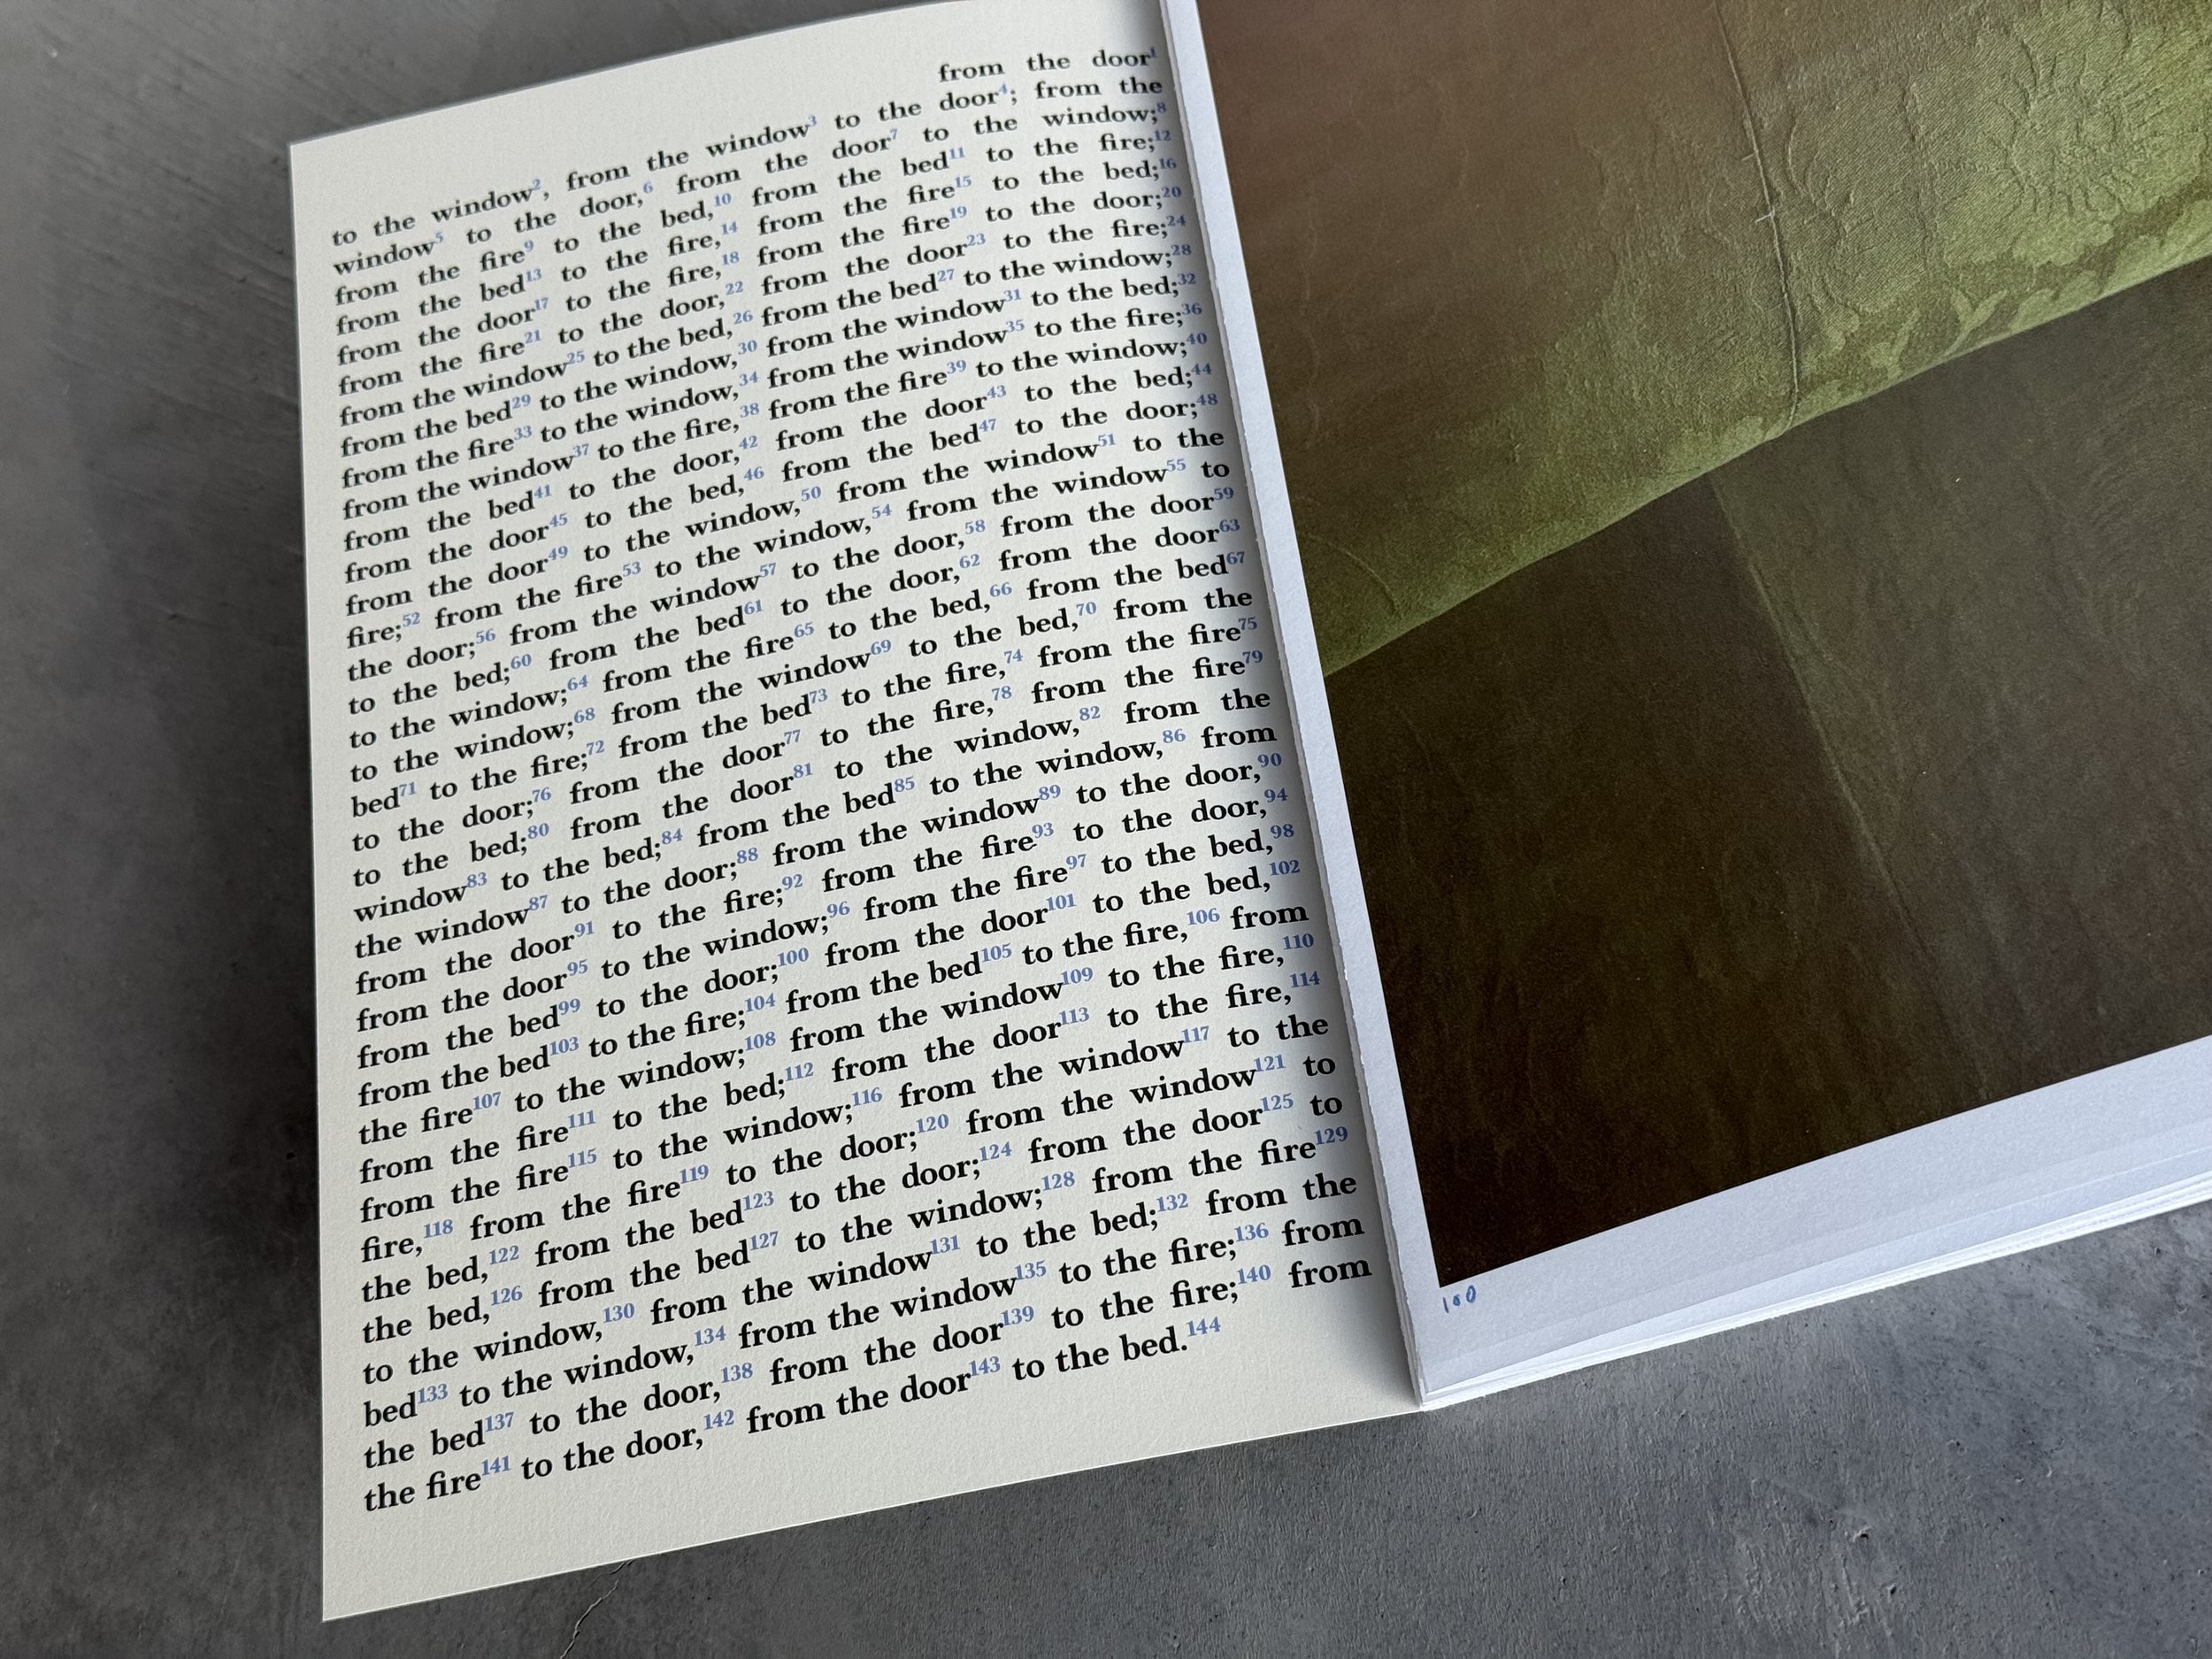 from the door¹
to the window², from the window³ to the door⁴; from the
window⁵ to the door,⁶ from the door⁷ to the window;⁸
from the fire⁹ to the bed,¹⁰ from the bed¹¹ to the fire;¹²
from the bed¹³ to the fire,¹⁴ from the fire¹⁵ to the bed;¹⁶
from the door¹⁷ to the fire,¹⁸ from the fire¹⁹ to the door;²⁰
from the fire²¹ to the door,²² from the door²³ to the fire;²⁴
from the window²⁵ to the bed,²⁶ from the bed²⁷ to the window;²⁸
from the bed²⁹ to the window,³⁰ from the window³¹ to the bed;³²
from the fire³³ to the window,³⁴ from the window³⁵ to the fire;³⁶
from the window³⁷ to the fire,³⁸ from the fire³⁹ to the window;⁴⁰
from the bed⁴¹ to the door,⁴² from the door⁴³ to the bed;⁴⁴
from the door⁴⁵ to the bed,⁴⁶ from the bed⁴⁷ to the door;⁴⁸
from the door⁴⁹ to the window,⁵⁰ from the window⁵¹ to the
fire;⁵² from the fire⁵³ to the window,⁵⁴ from the window⁵⁵ to
the door;⁵⁶ from the window⁵⁷ to the door,⁵⁸ from the door⁵⁹
to the bed;⁶⁰ from the bed⁶¹ to the door,⁶² from the door⁶³
to the window;⁶⁴ from the fire⁶⁵ to the bed,⁶⁶ from the bed⁶⁷
to the window;⁶⁸ from the window⁶⁹ to the bed,⁷⁰ from the
bed⁷¹ to the fire;⁷² from the bed⁷³ to the fire,⁷⁴ from the fire⁷⁵
to the door;⁷⁶ from the door⁷⁷ to the fire,⁷⁸ from the fire⁷⁹
to the bed;⁸⁰ from the door⁸¹ to the window,⁸² from the
window⁸³ to the bed;⁸⁴ from the bed⁸⁵ to the window,⁸⁶ from
the window⁸⁷ to the door;⁸⁸ from the window⁸⁹ to the door,⁹⁰
from the door⁹¹ to the fire;⁹² from the fire⁹³ to the door,⁹⁴
from the door⁹⁵ to the window;⁹⁶ from the fire⁹⁷ to the bed,⁹⁸
from the bed⁹⁹ to the door;¹⁰⁰ from the door¹⁰¹ to the bed,¹⁰²
from the bed¹⁰³ to the fire;¹⁰⁴ from the bed¹⁰⁵ to the fire,¹⁰⁶ from
the fire¹⁰⁷ to the window;¹⁰⁸ from the window¹⁰⁹ to the fire,¹¹⁰
from the fire¹¹¹ to the bed;¹¹² from the door¹¹³ to the fire,¹¹⁴
from the fire¹¹⁵ to the window;¹¹⁶ from the window¹¹⁷ to the
fire,¹¹⁸ from the fire¹¹⁹ to the door;¹²⁰ from the window¹²¹ to
the bed,¹²² from the bed¹²³ to the door;¹²⁴ from the door¹²⁵ to
the bed,¹²⁶ from the bed¹²⁷ to the window;¹²⁸ from the fire¹²⁹
to the window,¹³⁰ from the window¹³¹ to the bed;¹³² from the
bed¹³³ to the window,¹³⁴ from the window¹³⁵ to the fire;¹³⁶ from
the bed¹³⁷ to the door,¹³⁸ from the door¹³⁹ to the fire;¹⁴⁰ from
the fire¹⁴¹ to the door,¹⁴² from the door¹⁴³ to the bed.¹⁴⁴
100